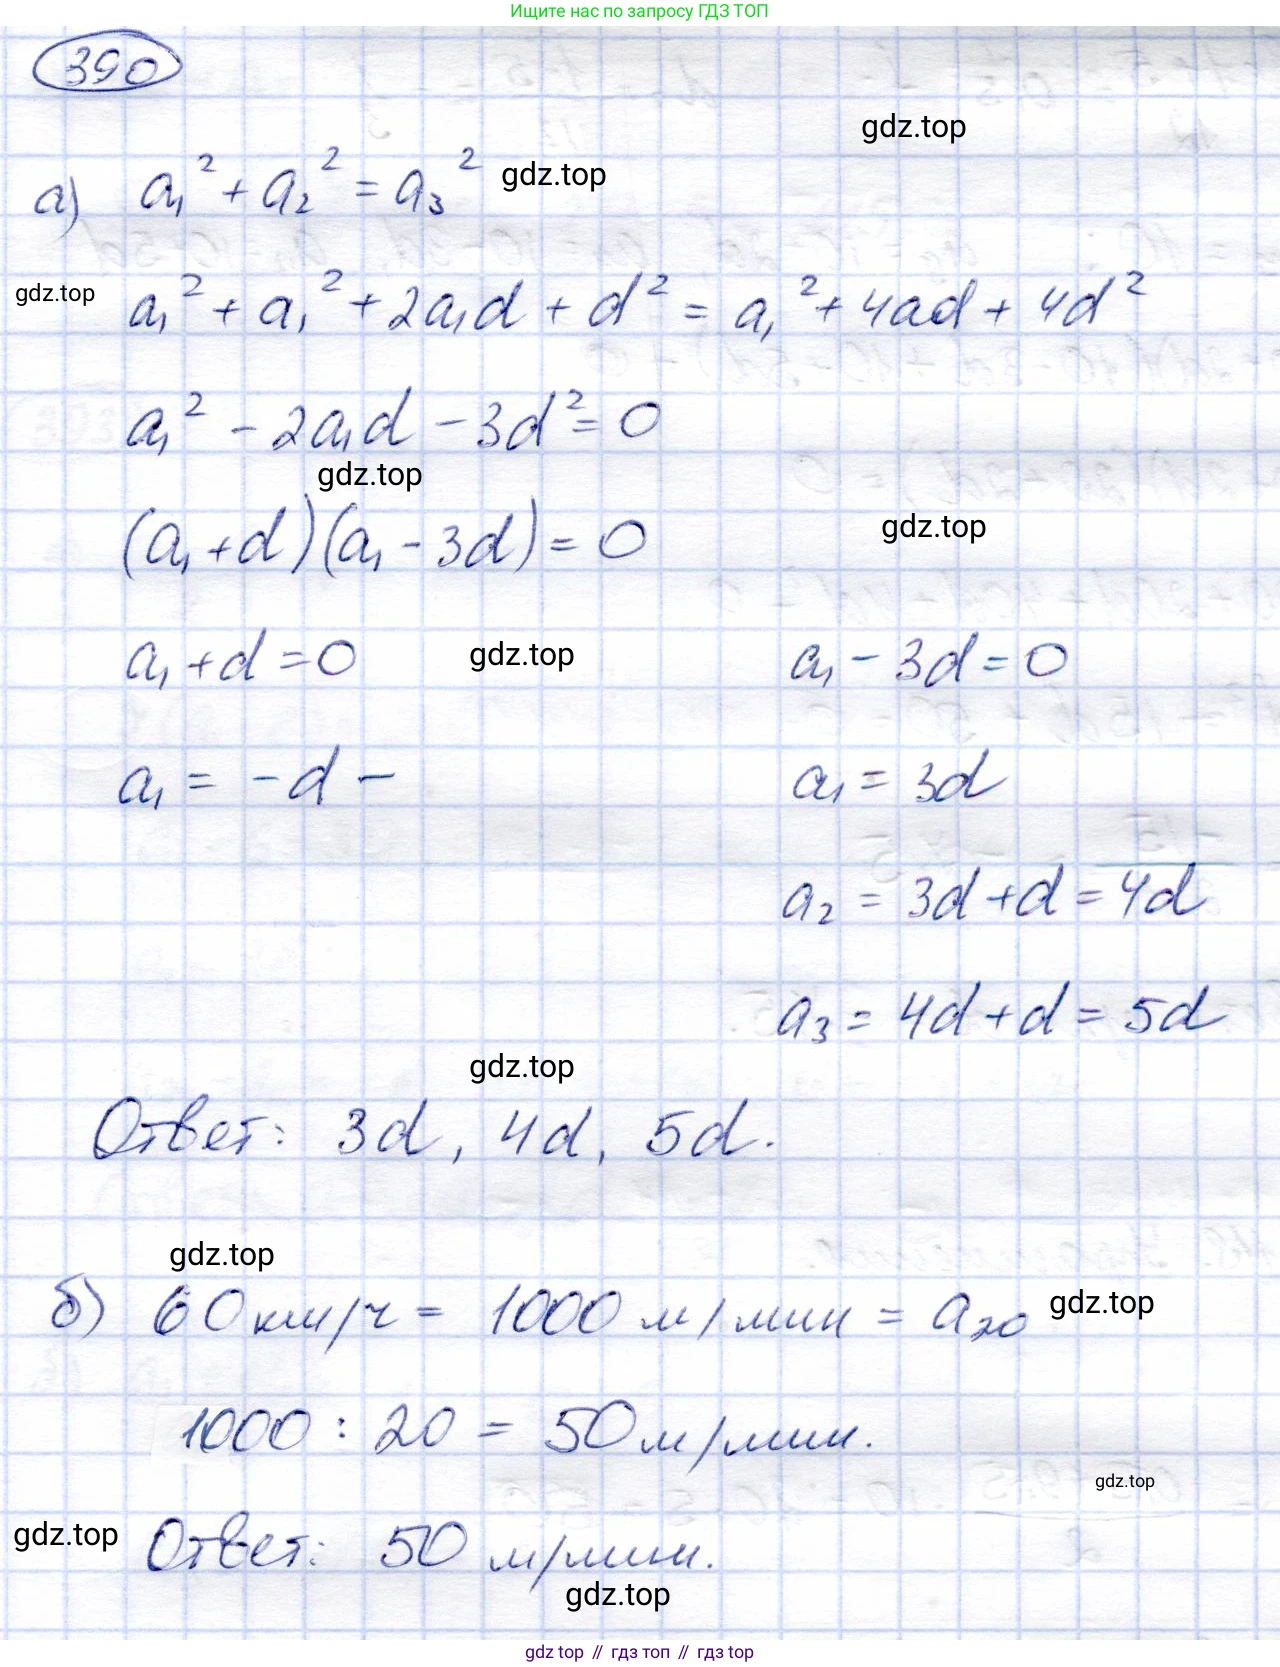 Ищите нас по запросу ГДЗ ТОП
390
gdz.top
а) a₁² + a₂² = a₃² gdz.top
gdz.top a₁² + a₁² + 2a₁d + d² = a₁² + 4ad + 4d²
a₁² - 2a₁d - 3d² = 0
gdz.top
(a₁ + d)(a₁ - 3d) = 0 gdz.top
a₁ + d = 0 gdz.top a₁ - 3d = 0
a₁ = -d - a₁ = 3d
a₂ = 3d + d = 4d
a₃ = 4d + d = 5d
gdz.top
Ответ: 3d, 4d, 5d.
gdz.top
б) 60 км/ч = 1000 м/мин = a₂₀ gdz.top
1000 : 20 = 50 м/мин.
gdz.top
gdz.top Ответ: 50 м/мин.
gdz.top
gdz top // гдз топ // гдз top